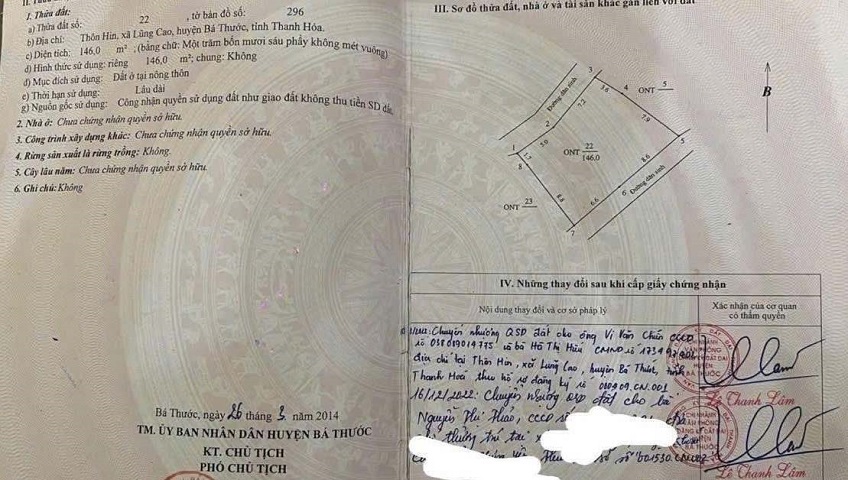 1. Thửa đất:
a) Thửa đất số: 22 , tờ bản đồ số: 296
b) Địa chỉ: Thôn Hin, xã Lũng Cao, huyện Bá Thước, tỉnh Thanh Hóa.
c) Diện tích: 146,0 m² ; (bằng chữ: Một trăm bốn mươi sáu phẩy không mét vuông)
d) Hình thức sử dụng: riêng 146,0 m²; chung: Không
đ) Mục đích sử dụng: Đất ở tại nông thôn
e) Thời hạn sử dụng: Lâu dài
g) Nguồn gốc sử dụng: Công nhận quyền sử dụng đất như giao đất không thu tiền SD đất.
2. Nhà ở: Chưa chứng nhận quyền sở hữu.
3. Công trình xây dựng khác: Chưa chứng nhận quyền sở hữu.
4. Rừng sản xuất là rừng trồng: Không.
5. Cây lâu năm: Chưa chứng nhận quyền sở hữu.
6. Ghi chú: Không
Bá Thước, ngày 26 tháng 3 năm 2014
TM. ỦY BAN NHÂN DÂN HUYỆN BÁ THƯỚC
KT. CHỦ TỊCH
PHÓ CHỦ TỊCH
III. Sơ đồ thửa đất, nhà ở và tài sản khác gắn liền với đất
B
Đường dân sinh
3
3.6
4
ONT 5
7.9
5
7.2
2
5.0
1
1.7
8
ONT 22
146.0
8.6
6
6.6
Đường dân sinh
8.8
7
ONT 23
IV. Những thay đổi sau khi cấp giấy chứng nhận
Nội dung thay đổi và cơ sở pháp lý
Xác nhận của cơ quan
có thẩm quyền
Chuyển nhượng QSD đất cho ông Vi Văn Chiến CCCD
số 038019014775 và bà Hà Thị CMND số
địa chỉ tại Thôn Hin, xã Lũng Cao, huyện Bá Thước, tỉnh
Thanh Hoá theo hồ sơ đăng ký số 010909.CN.001
16/12/2022: Chuyển nhượng QSD đất cho bà
Nguyễn Thị Thảo, CCCD số
thường trú tại
số
Lê Thanh Lâm
Lê Thanh Lâm